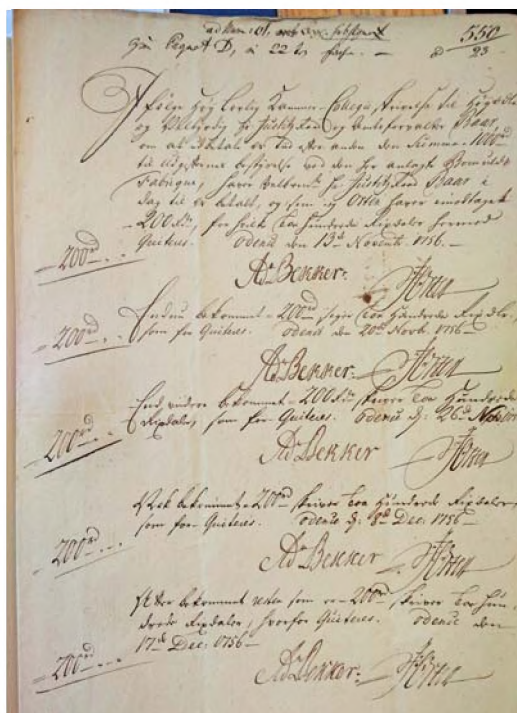 550
23
Hvis Paquet D, a 22
Ifølge Høy Lovlig Kammer-Collegii Skrivelse til Høyædle
og Velbyrdig Hr. Justitz Raad og Amtsforvalter Baar,
om at udbetale Tid efter anden den Summa 1000rd
til udgifternes bestrijdelse ved den her anlagte Bomulds
Fabrique, haver Velbemte Hr. Justitz Raad Baar i
dag til os betalt, og som vi Osten haver imodtaget
- 200rd, for hvilke toe hundrede Rixdaler hermed
Quiteres. Odense den 13de Novembr. 1756.-
- 200rd
Ad. Bekker.
Endnu bekommet - 200rd siger toe hundrede Rixdlr.,
- 200rd
som her Quiteres. Odense den 20de Novb. 1756-
Ad. Bekker.
End videre bekommet - 200rd skriver toe hundrede
Rixdaler, som her Quiteres. Odense d: 26de Novembr
- 200rd
Ad. Bekker
bekommet - 200rd skriver toe hundrede Rixdaler,
som her Quiteres. Odense d: 8de Dec: 1756-
- 200rd
Ad. Bekker
Atter bekommet resten som er - 200rd skriver toe hun-
drede Rixdaler, hvorfor Quiteres. Odense den
17de Dec: 1756-
- 200rd
Ad. Bekker.